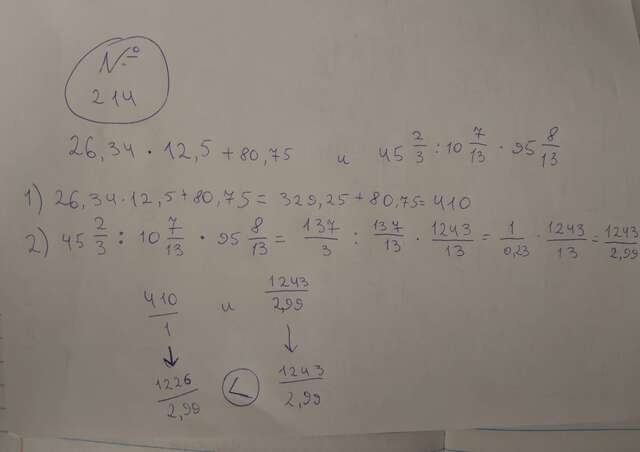 №
214
26,34 · 12,5 + 80,75 и 45 2/3 : 10 7/13 · 95 8/13
1) 26,34 · 12,5 + 80,75 = 329,25 + 80,75 = 410
2) 45 2/3 : 10 7/13 · 95 8/13 = 137/3 : 137/13 · 1243/13 = 1/0,23 · 1243/13 = 1243/2,99
410/1 и 1243/2,99
↓ ↓
1226/2,99 < 1243/2,99